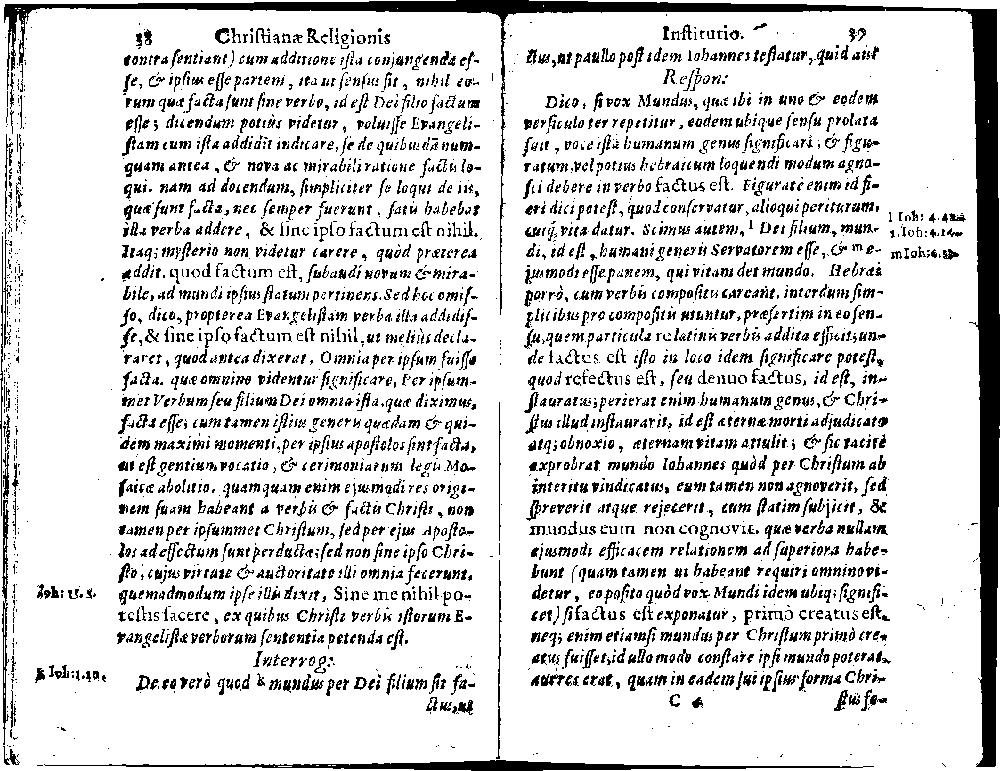 38 Christianæ Religionis
contra sentiant) cum additione ista conjungenda es-
se, & ipsius esse partem, ita ut sensus sit, nihil eo-
rum quæ facta sunt sine verbo, id est Dei filio factum
esse; dicendum potius videtur, voluisse Evangeli-
stam cum ista addidit indicare, se de quibusdā num-
quam antea, & nova ac mirabili ratione factis lo-
qui. nam ad docendum, simpliciter se loqui de iis,
quæ sunt facta, nec semper fuerunt, satis habebat
illa verba addere, & sine ipso factum est nihil.
Itaq; mysterio non videtur carere, quòd præterea
addit. quod factum est, subaudi novum & mira-
bile, ad mundi ipsius statum pertinens. Sed hoc omis-
so, dico, propterea Evangelistam verba illa addidis-
se, & sine ipso factum est nihil, ut meliùs decla-
raret, quod antea dixerat, Omnia per ipsum fuisse
facta. quæ omnino videntur significare, Per ipsum-
met Verbum seu filium Dei omnia ista, quæ diximus,
facta esse; cum tamen istius generis quædam & qui-
dem maximi momenti, per ipsius apostolos sint facta,
ut est gentium vocatio, & cerimoniarum legis Mo-
saicæ abolitio. quamquam enim ejusmodi res origi-
nem suam habeant a verbis & factis Christi, non
tamen per ipsummet Christum, sed per ejus Aposto-
los ad effectum sunt perductæ; sed non sine ipso Chri-
sto, cujus virtute & auctoritate illi omnia fecerunt.
Joh: 15.5. quemadmodum ipse illis dixit, Sine me nihil po-
testis facere, ex quibus Christi verbis istorum E-
vangelistæ verborum sententia petenda est.
Interrog:
k Joh: 1.10. De eo verò quod k mundus per Dei filium sit fa-
ctus, ut
Institutio. 39
ctus, ut paullo post idem Iohannes testatur, quid ais?
Respon:
Dico, si vox Mundus, quæ ibi in uno & eodem
versiculo ter repetitur, eodem ubique sensu prolata
fuit, voce istâ humanum genus significari; & figu-
ratum, vel potius hebraicum loquendi modum agno-
sci debere in verbo factus est. Figuratè enim id fi-
eri dici potest, quod conservatur, alioqui periturum,
l Joh: 4.42.
cuiq; vita datur. Scimus autem, l Dei filium, mun-
1. Joh: 4.14.
di, id est, humani generis Servatorem esse, & m e-
m Joh: 6.33.
jusmodi esse panem, qui vitam det mundo. Hebræi
porrò, cum verbis compositis careant, interdum sim-
plicibus pro compositis utuntur, præsertim in eo sen-
su, quem particula re latinis verbis addita efficit; un-
de factus est isto in loco idem significare potest,
quod refectus est, seu denuo factus, id est, in-
stauratus; perierat enim humanum genus, & Chri-
stus illud instauravit, id est æternæ morti adjudicato
atq; obnoxio, æternam vitam attulit; & sic tacitè
exprobrat mundo Iohannes quòd per Christum ab
interitu vindicatus, eum tamen non agnoverit, sed
spreverit atque rejecerit, cum statim subjicit, &
mundus eum non cognovit. quæ verba nullam
ejusmodi efficacem relationem ad superiora habe-
bunt (quam tamen ut habeant requiri omnino vi-
detur, eo posito quòd vox Mundi idem ubiq; signifi-
cet) si factus est exponatur, primò creatus est.
neq; enim etiamsi mundus per Christum primò cre-
atus fuisset, id ullo modo constare ipsi mundo poterat.
aut res erat, quam in eadem sui ipsius forma Chri-
C 4 stus fe-